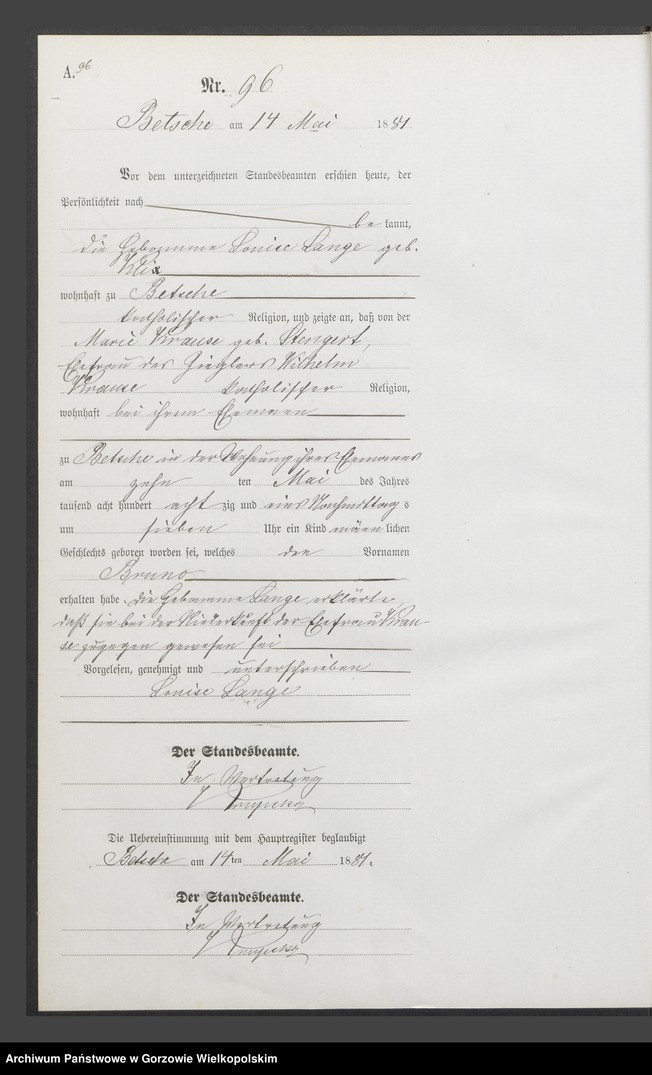 A. 96
Nr. 96
Betsche am 14 Mai 1881
Vor dem unterzeichneten Standesbeamten erschien heute, der
Persönlichkeit nach
be kannt,
die Hebamme Louise Lange geb.
Klix
wohnhaft zu Betsche
katholischer Religion, und zeigte an, daß von der
Marie Krause geb. Stengert,
Ehefrau des Zieglers Wilhelm
Krause katholischer Religion,
wohnhaft bei ihrem Ehemann
zu Betsche in der Wohnung ihres Ehemannes
am zehn ten Mai des Jahres
tausend acht hundert acht zig und eins Nachmittag s
um sieben Uhr ein Kind männ lichen
Geschlechts geboren worden sei, welches den Vornamen
Bruno
erhalten habe. Die Hebamme Lange erklärte
daß sie bei der Niederkunft der Ehefrau Krau-
se zugegen gewesen sei
Vorgelesen, genehmigt und unterschrieben
Louise Lange
Der Standesbeamte.
In Vertretung
Die Uebereinstimmung mit dem Hauptregister beglaubigt
Betsche am 14ten Mai 1881.
Der Standesbeamte.
In Vertretung
Archiwum Państwowe w Gorzowie Wielkopolskim